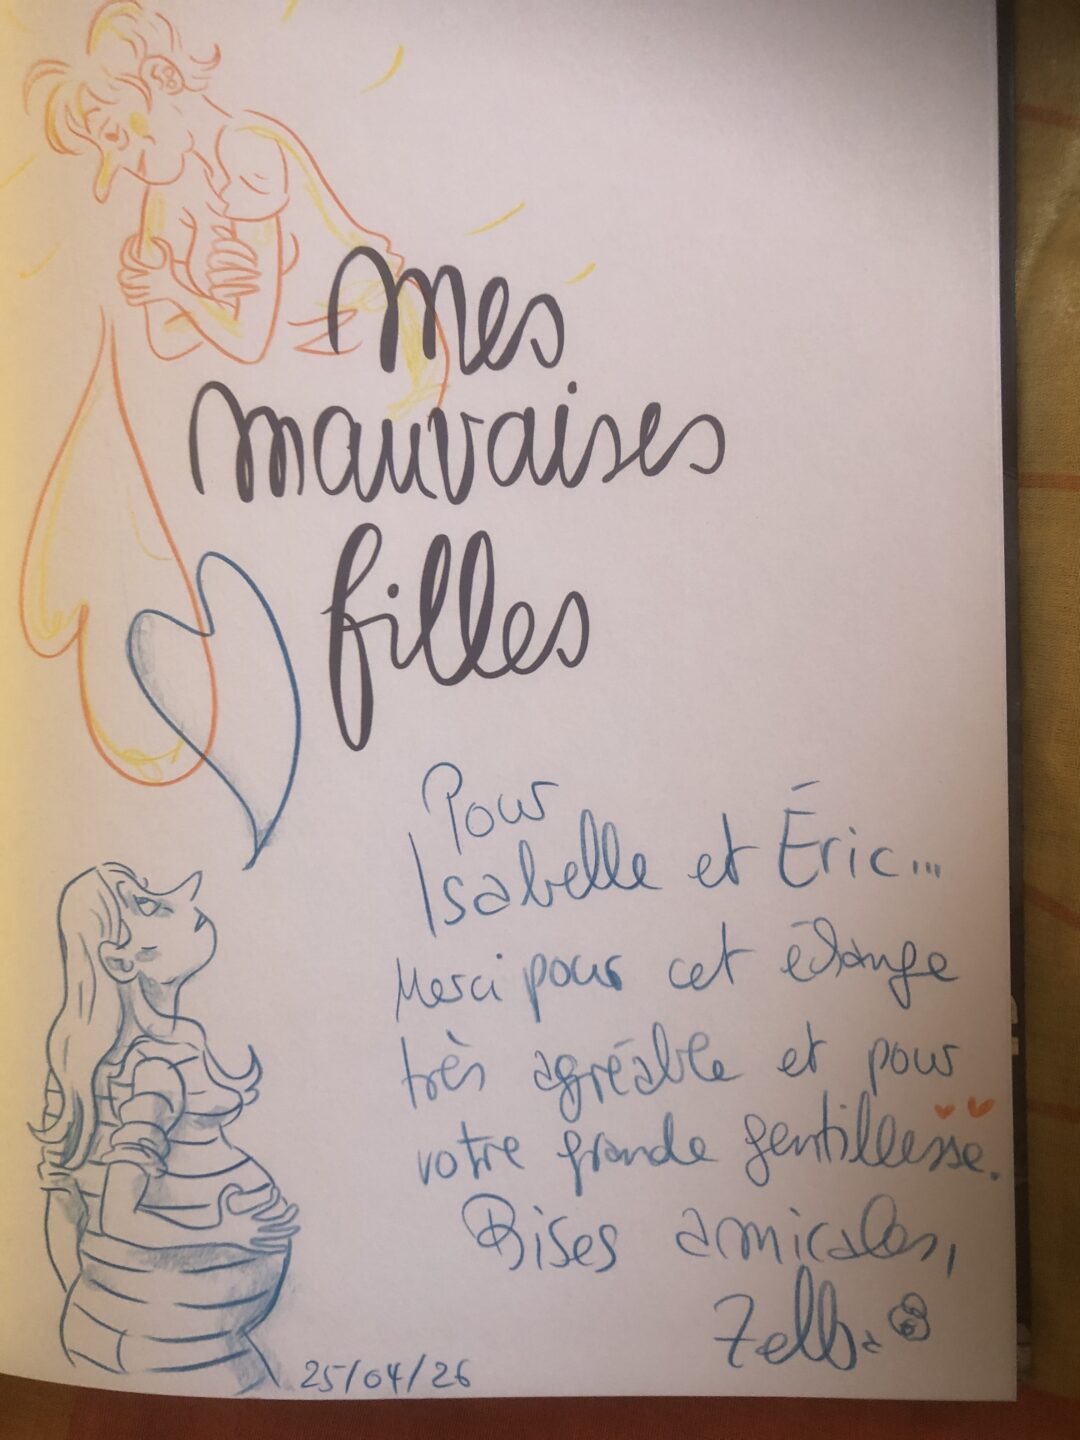 Mes
mauvaises
filles
Pour
Isabelle et Éric...
Merci pour cet échange
très agréable et pour
votre grande gentillesse.
Bises amicales,
Zelba
25/04/26